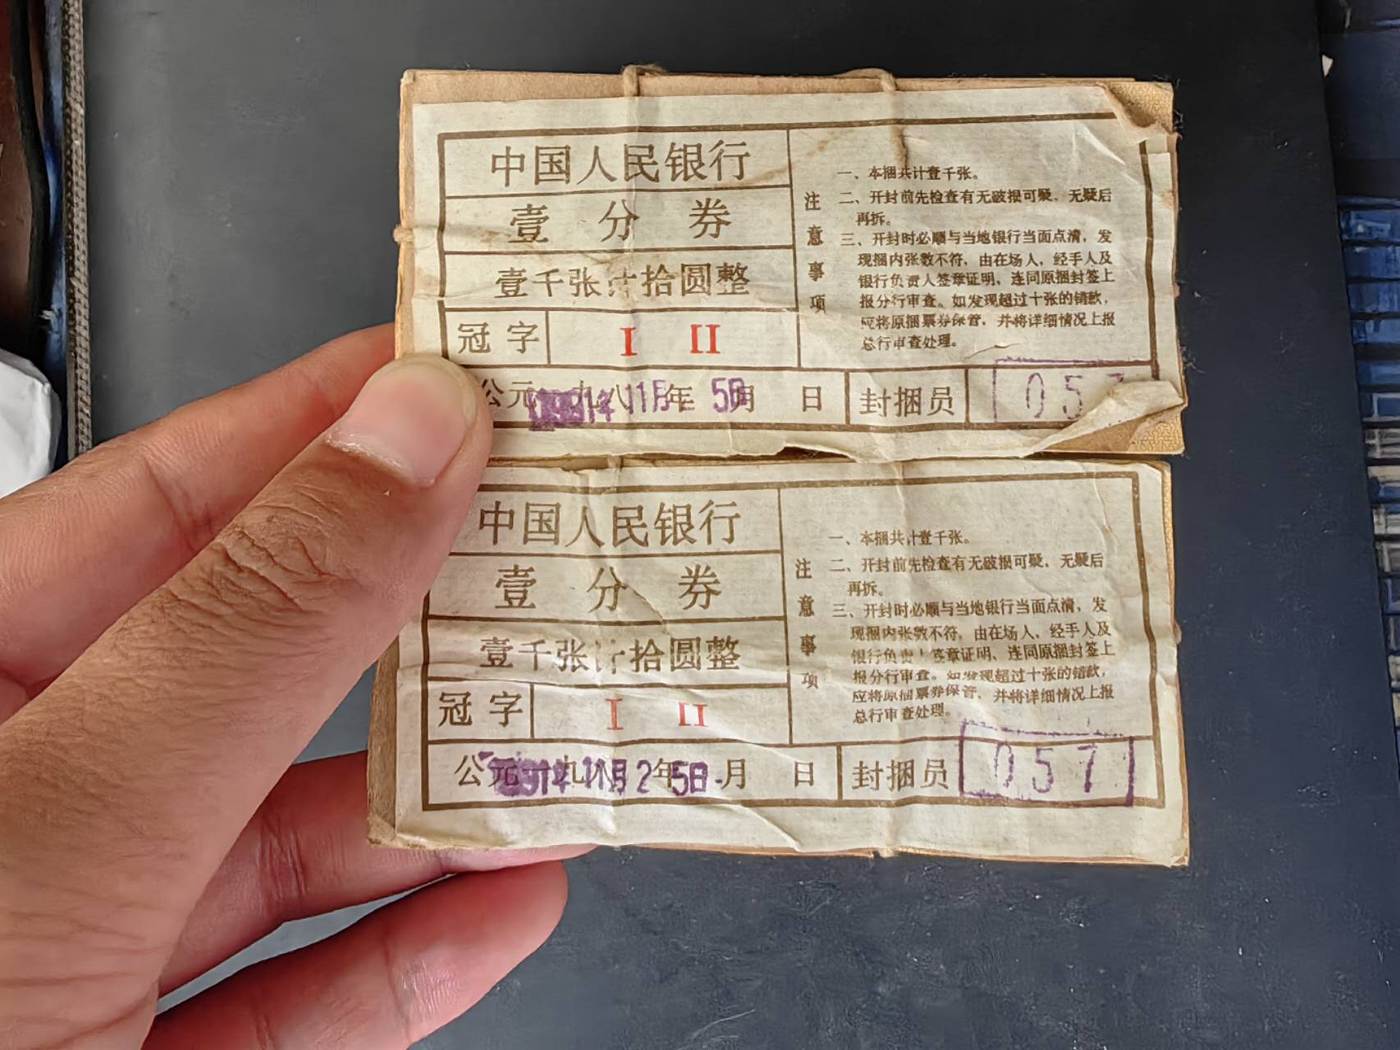 中国人民银行
壹分券
壹千张计拾圆整
冠字 I II
公元 九八 年 月 日 封捆员 057
11月 5日
注意事项
一、本捆共计壹千张。
二、开封前先检查有无破损可疑，无疑后
再拆。
三、开封时必顺与当地银行当面点清，发
现捆内张数不符，由在场人，经手人及
银行负责人签章证明，连同原捆封签上
报分行审查。如发现超过十张的错款，
应将原捆票券保管，并将详细情况上报
总行审查处理。
中国人民银行
壹分券
壹千张计拾圆整
冠字 I II
公元 九八 年 月 日 封捆员 057
11月25日
注意事项
一、本捆共计壹千张。
二、开封前先检查有无破损可疑，无疑后
再拆。
三、开封时必顺与当地银行当面点清，发
现捆内张数不符，由在场人，经手人及
银行负责人签章证明，连同原捆封签上
报分行审查。如发现超过十张的错款，
应将原捆票券保管，并将详细情况上报
总行审查处理。